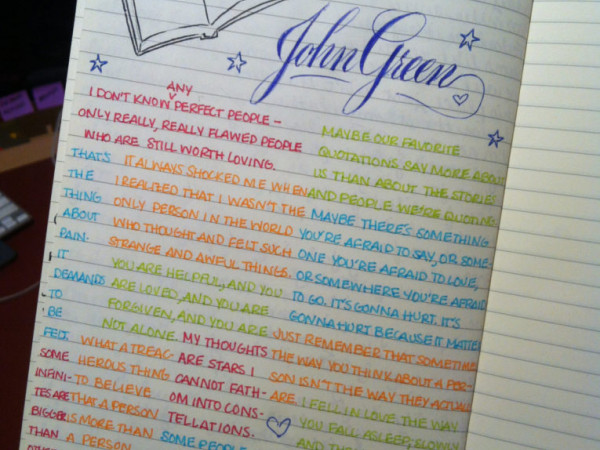 John Green
I DON'T KNOW ANY PERFECT PEOPLE –
ONLY REALLY, REALLY FLAWED PEOPLE
WHO ARE STILL WORTH LOVING.
MAYBE OUR FAVORITE
QUOTATIONS SAY MORE ABOU
US THAN ABOUT THE STORIES
AND PEOPLE WE'RE QUOTING
THAT'S
THE
THING
ABOUT
PAIN.
IT
DEMANDS
TO
BE
FELT.
IT ALWAYS SHOCKED ME WHEN
I REALIZED THAT I WASN'T THE
ONLY PERSON IN THE WORLD
WHO THOUGHT AND FELT SUCH
STRANGE AND AWFUL THINGS.
MAYBE THERE'S SOMETHING
YOU'RE AFRAID TO SAY, OR SOME-
ONE YOU'RE AFRAID TO LOVE,
OR SOMEWHERE YOU'RE AFRAID
TO GO. IT'S GONNA HURT. IT'S
GONNA HURT BECAUSE IT MATTE
YOU ARE HELPFUL, AND YOU
ARE LOVED, AND YOU ARE
FORGIVEN, AND YOU ARE
NOT ALONE.
MY THOUGHTS
ARE STARS I
CANNOT FATH-
OM INTO CONS-
TELLATIONS.
JUST REMEMBER THAT SOMETIME
THE WAY YOU THINK ABOUT A PER-
SON ISN'T THE WAY THEY ACTUAL
ARE.
WHAT A TREAC-
HEROUS THING
TO BELIEVE
THAT A PERSON
IS MORE THAN
A PERSON
SOME
INFINI-
TIES ARE
BIGGER
THAN
I FELL IN LOVE THE WAY
YOU FALL ASLEEP; SLOWLY
AND THE
SOME PEOPLE